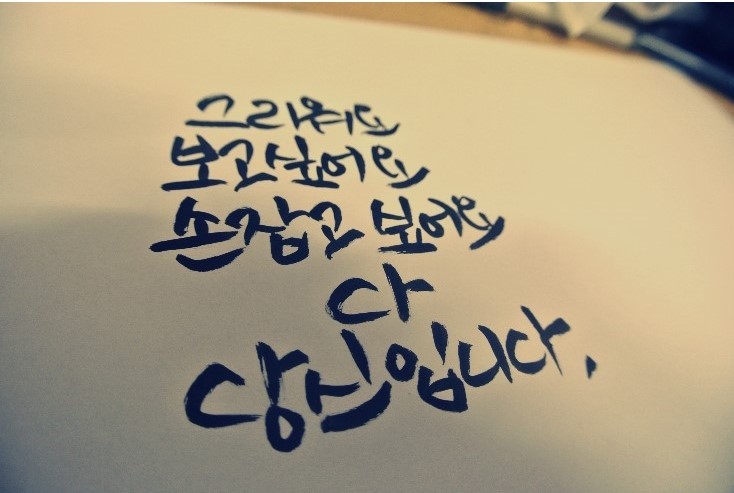 그리워요
보고싶어요
손잡고 싶어요
다
당신입니다.